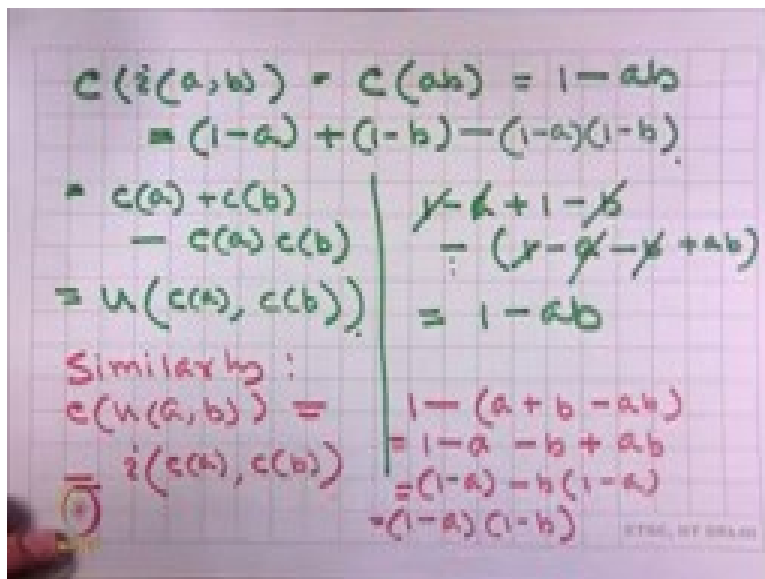 c(i(a,b)) = c(ab) = 1 - ab
= (1-a) + (1-b) - (1-a)(1-b)
= c(a) + c(b)
- c(a) c(b)
= u(c(a), c(b))
1 - a + 1 - b
- (1 - a - b + ab)
= 1 - ab
Similarly :
c(u(a,b)) =
= i(c(a), c(b))
1 - (a + b - ab)
= 1 - a - b + ab
= (1-a) - b(1-a)
= (1-a) (1-b)